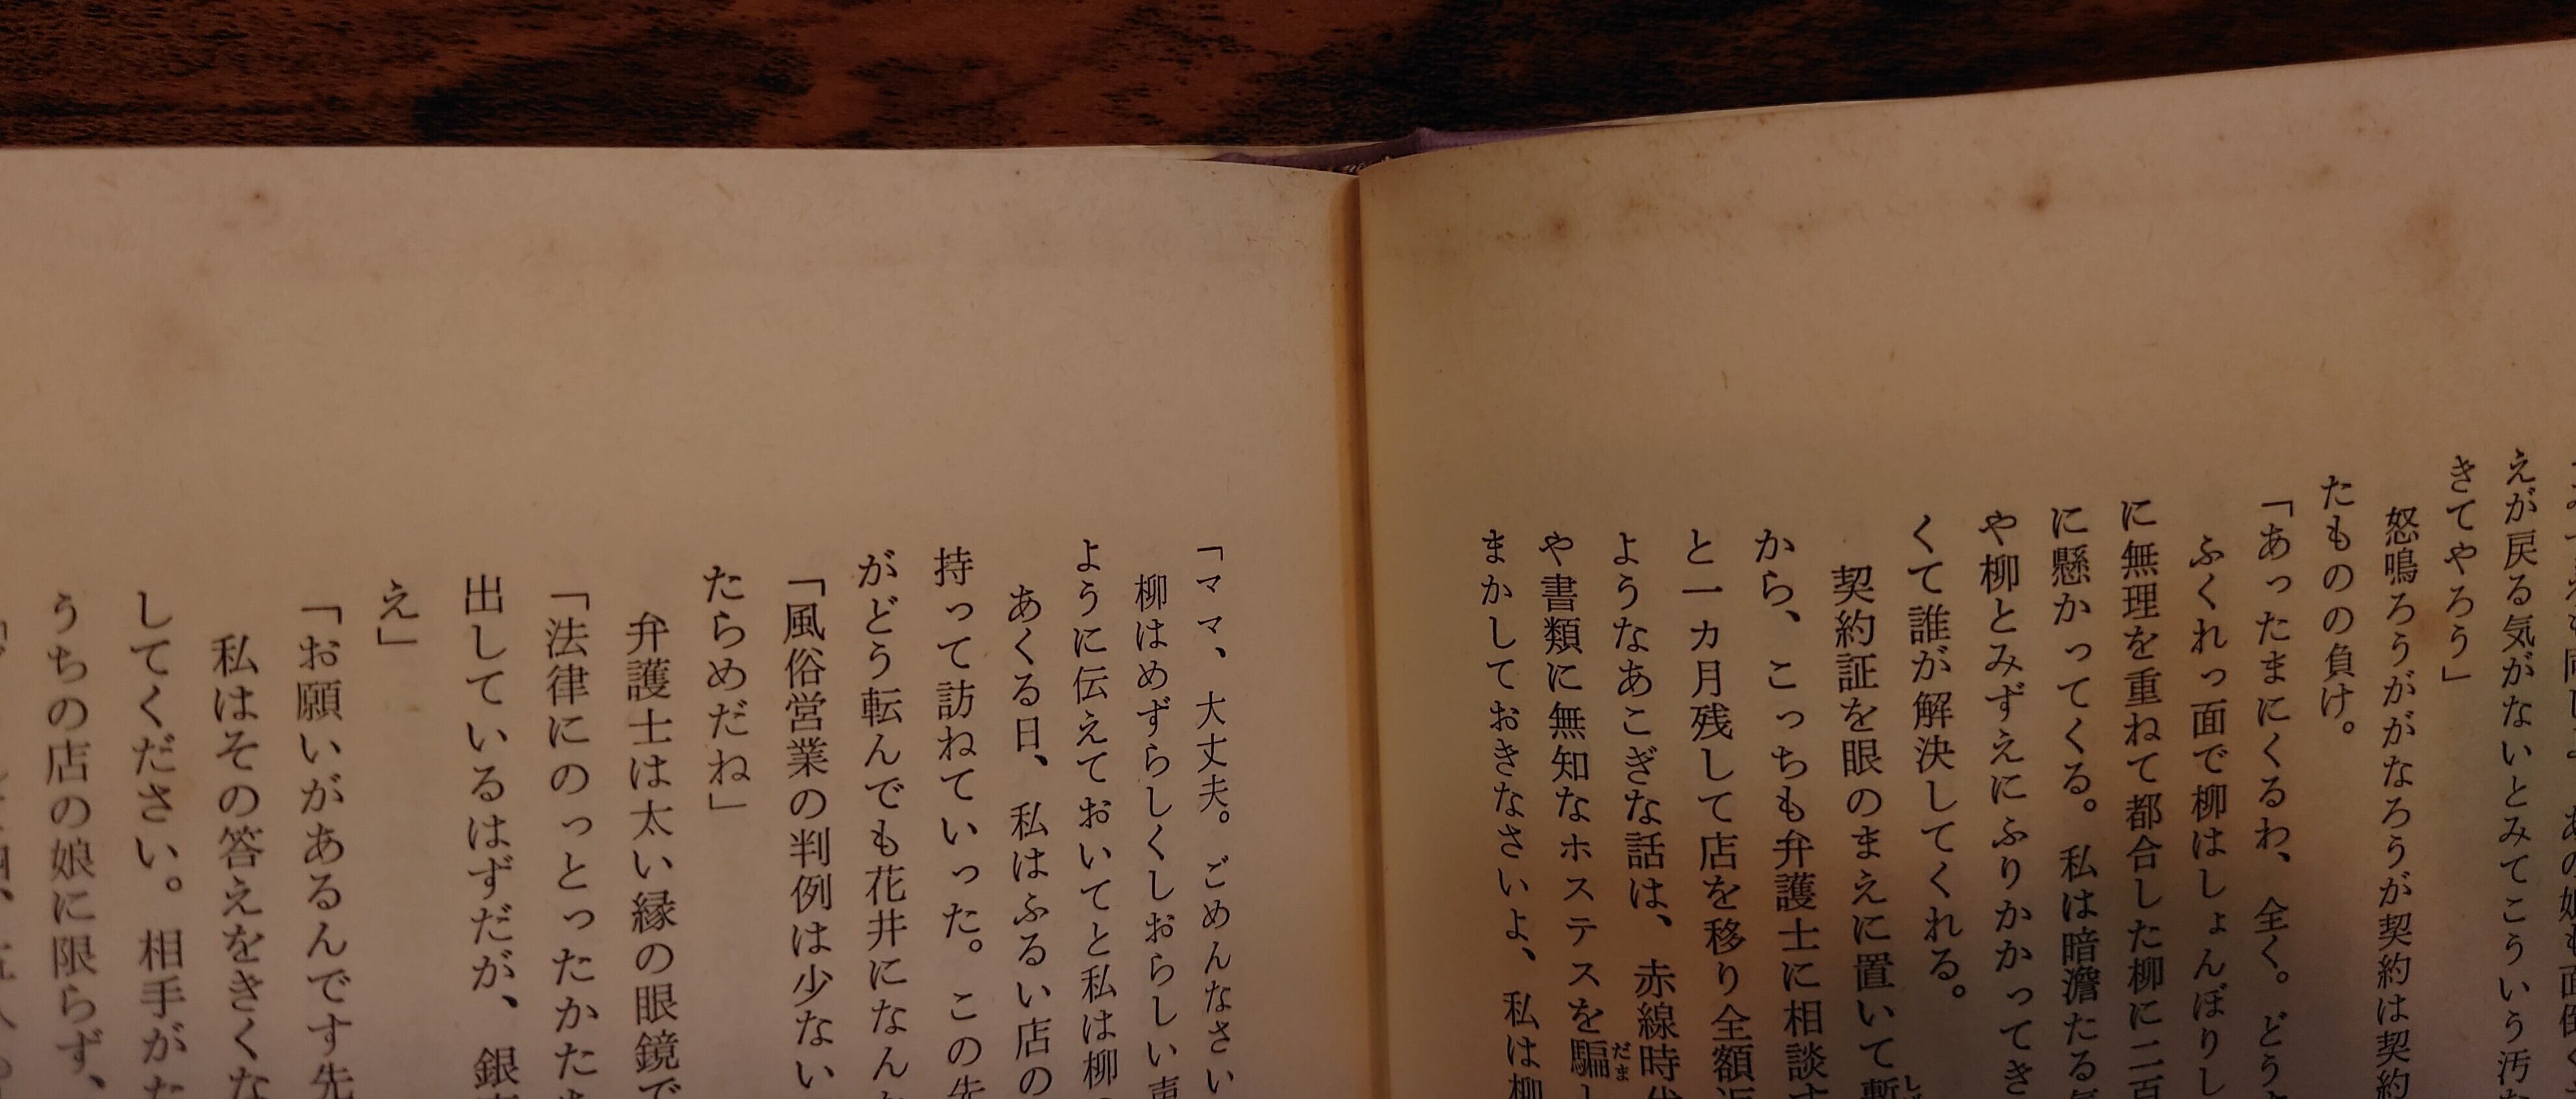 えが戻る気がないとみてこういう汚
きてやろう」
怒鳴ろうががなろうが契約は契約
たものの負け。
「あったまにくるわ、全く。どう
ふくれっ面で柳はしょんぼりし
に無理を重ねて都合した柳に二百
に懸かってくる。私は暗澹たる気
や柳とみずえにふりかかってき
くて誰が解決してくれる。
契約証を眼のまえに置いて暫
から、こっちも弁護士に相談す
と一カ月残して店を移り全額返
ようなあこぎな話は、赤線時代
や書類に無知なホステスを騙
まかしておきなさいよ、私は柳
「ママ、大丈夫。ごめんなさい
柳はめずらしくしおらしい声
ように伝えておいてと私は柳
あくる日、私はふるい店の
持って訪ねていった。この先
がどう転んでも花井になんか
「風俗営業の判例は少ない
たらめだね」
弁護士は太い縁の眼鏡で
「法律にのっとったかたち
出しているはずだが、銀座
え」
「お願いがあるんです先
私はその答えをきくな
してください。相手がた
うちの店の娘に限らず、